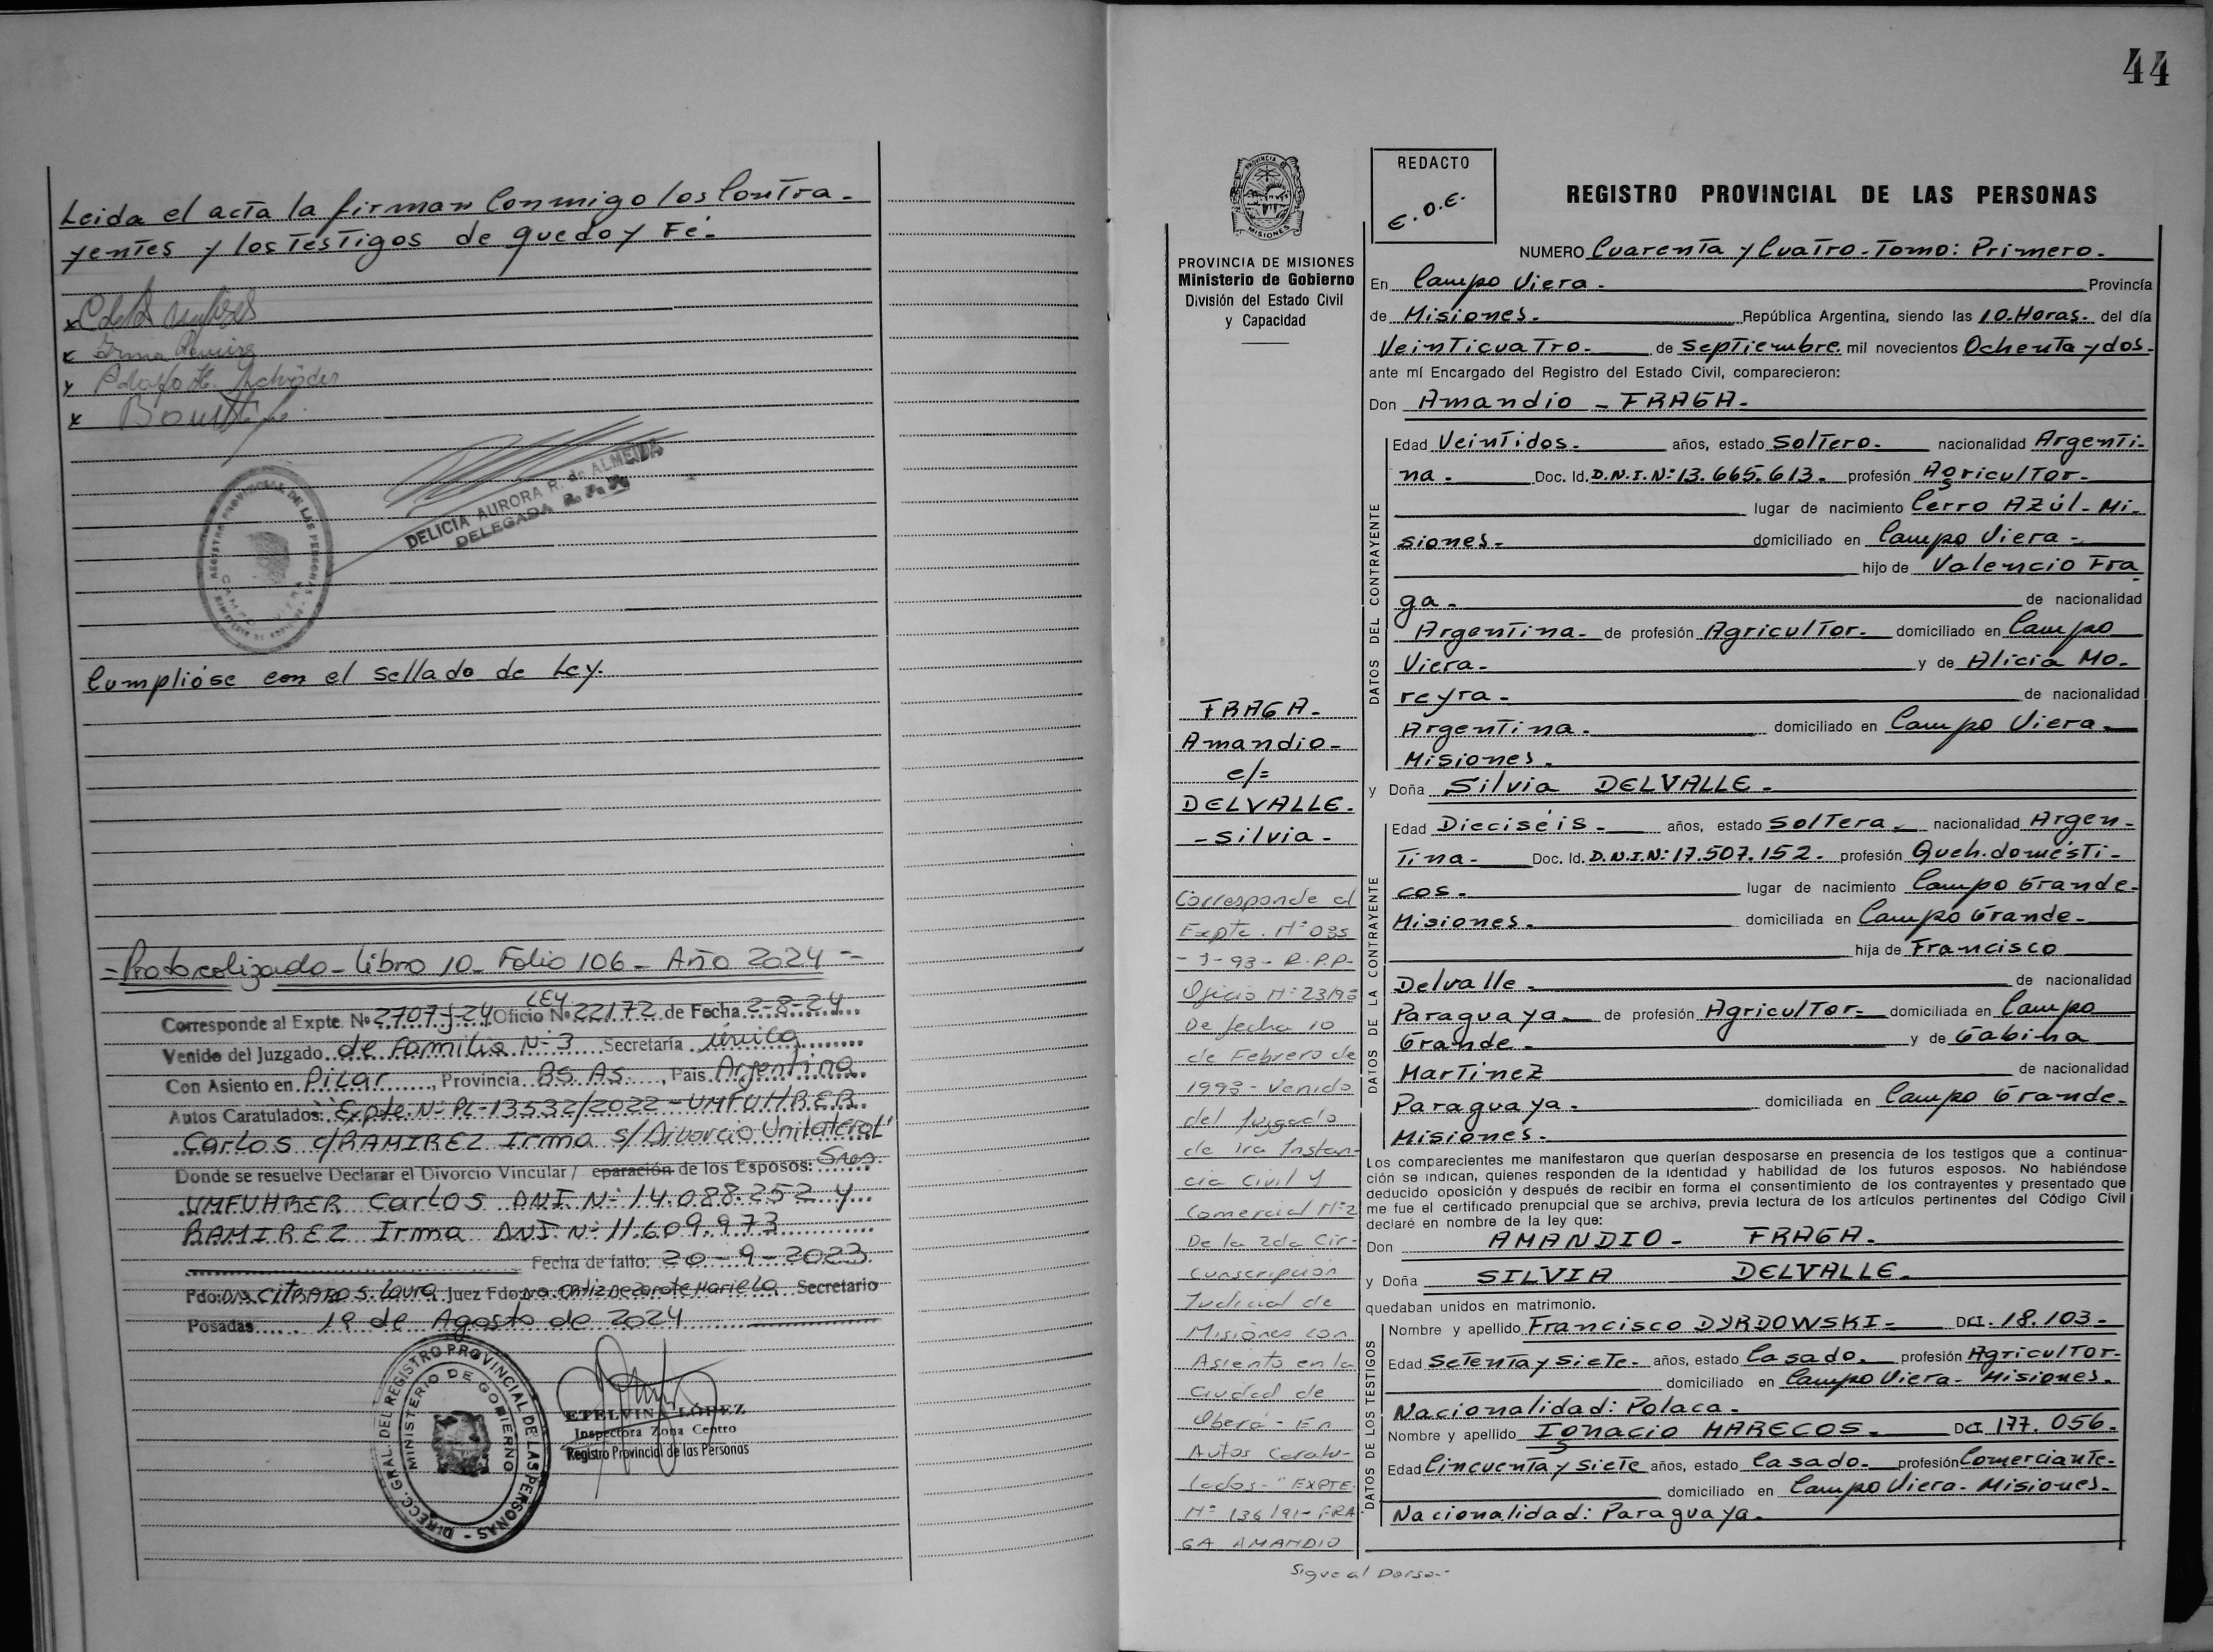 Leida el acta la firman Conmigo los Contra-
yentes y los Testigos de que doy Fé.-
x
x Irma Ramirez
x Adolfo H. Schröder
x
REGISTRO PROVINCIAL DE LAS PERSONAS
DELICIA AURORA R. de ALMEIDA
DELEGADA R. P. P.
Cumplióse con el sellado de Ley.
=Protocolizado- Libro 10- Folio 106- Año 2024-=
LEY
Corresponde al Expte. Nº 2707-J-24 Oficio Nº 22172 de Fecha 2-8-24
Venido del Juzgado de Familia Nº 3 Secretaría única
Con Asiento en Pilar, Provincia BS.AS., País Argentina
Autos Caratulados: "Expte. Nº PL-13532/2022- UMFUHRER
Carlos c/RAMIREZ Irma s/Divorcio Unilateral"
Donde se resuelve Declarar el Divorcio Vincular / eparación de los Esposos: Sres.
UMFUHRER Carlos DNI Nº 14.088.252 y
RAMIREZ Irma DNI Nº 11.609.973
Fecha de fallo: 20-9-2023
Fdo: Dra CITRARO S. Laura Juez Fdo: Dra. Ortiz de Zarate Mariela Secretario
Posadas 19 de Agosto de 2024
DIRECC. GRAL. DEL REGISTRO PROVINCIAL DE LAS PERSONAS
MINISTERIO DE GOBIERNO
ETELVINA LÓPEZ
Inspectora Zona Centro
Registro Provincial de las Personas
44
PROVINCIA DE MISIONES
PROVINCIA DE MISIONES
Ministerio de Gobierno
División del Estado Civil
y Capacidad
FRAGA-
Amandio-
c/=
DELVALLE.
-Silvia-
Corresponde al
Expte. Nº 035
-J-93- R.P.P-
Oficio Nº 23/93
De fecha 10
de Febrero de
1993- Venido
del Juzgado
de 1ra Instan-
cia Civil y
Comercial Nº 2
De la 2da Cir-
cunscripción
Judicial de
Misiones con
Asiento en la
ciudad de
Oberá- En
Autos Caratu-
lados- "EXPTE.
Nº 136/91- FRA
GA AMANDIO
Sigue al Dorso-
REDACTO
E.O.E.
REGISTRO PROVINCIAL DE LAS PERSONAS
NUMERO Cuarenta y Cuatro- Tomo: Primero-
En Campo Viera- Provincia
de Misiones- República Argentina, siendo las 10.Horas- del día
Veinticuatro- de Septiembre. mil novecientos Ochenta y dos-
ante mí Encargado del Registro del Estado Civil, comparecieron:
Don Amandio - FRAGA-
DATOS DEL CONTRAYENTE
Edad Veintidos- años, estado Soltero- nacionalidad Argenti-
na- Doc. Id. D.N.I.Nº: 13.665.613- profesión Agricultor-
lugar de nacimiento Cerro Azúl- Mi-
siones- domiciliado en Campo Viera-
hijo de Valencio Fra
ga- de nacionalidad
Argentina- de profesión Agricultor- domiciliado en Campo
Viera- y de Alicia Mo-
reyra- de nacionalidad
Argentina- domiciliado en Campo Viera-
Misiones-
y Doña Silvia DELVALLE-
DATOS DE LA CONTRAYENTE
Edad Dieciséis- años, estado Soltera- nacionalidad Argen-
Tina- Doc. Id. D.N.I.Nº: 17.507.152- profesión Queh.domésti-
cos- lugar de nacimiento Campo Grande-
Misiones- domiciliada en Campo Grande-
hija de Francisco
Delvalle- de nacionalidad
Paraguaya- de profesión Agricultor- domiciliada en Campo
Grande- y de Gabina
Martinez de nacionalidad
Paraguaya- domiciliada en Campo Grande-
Misiones-
Los comparecientes me manifestaron que querían desposarse en presencia de los testigos que a continua-
ción se indican, quienes responden de la identidad y habilidad de los futuros esposos. No habiéndose
deducido oposición y después de recibir en forma el consentimiento de los contrayentes y presentado que
me fue el certificado prenupcial que se archiva, previa lectura de los artículos pertinentes del Código Civil
declaré en nombre de la ley que:
Don AMANDIO- FRAGA-
y Doña SILVIA DELVALLE-
quedaban unidos en matrimonio.
DATOS DE LOS TESTIGOS
Nombre y apellido Francisco DYRDOWSKI- DCI. 18.103-
Edad Setenta y siete- años, estado Casado- profesión Agricultor-
domiciliado en Campo Viera- Misiones-
Nacionalidad: Polaca-
Nombre y apellido Ignacio MARECOS- DCI 177.056-
Edad Cincuenta y siete años, estado Casado- profesión Comerciante-
domiciliado en Campo Viera- Misiones-
Nacionalidad: Paraguaya-